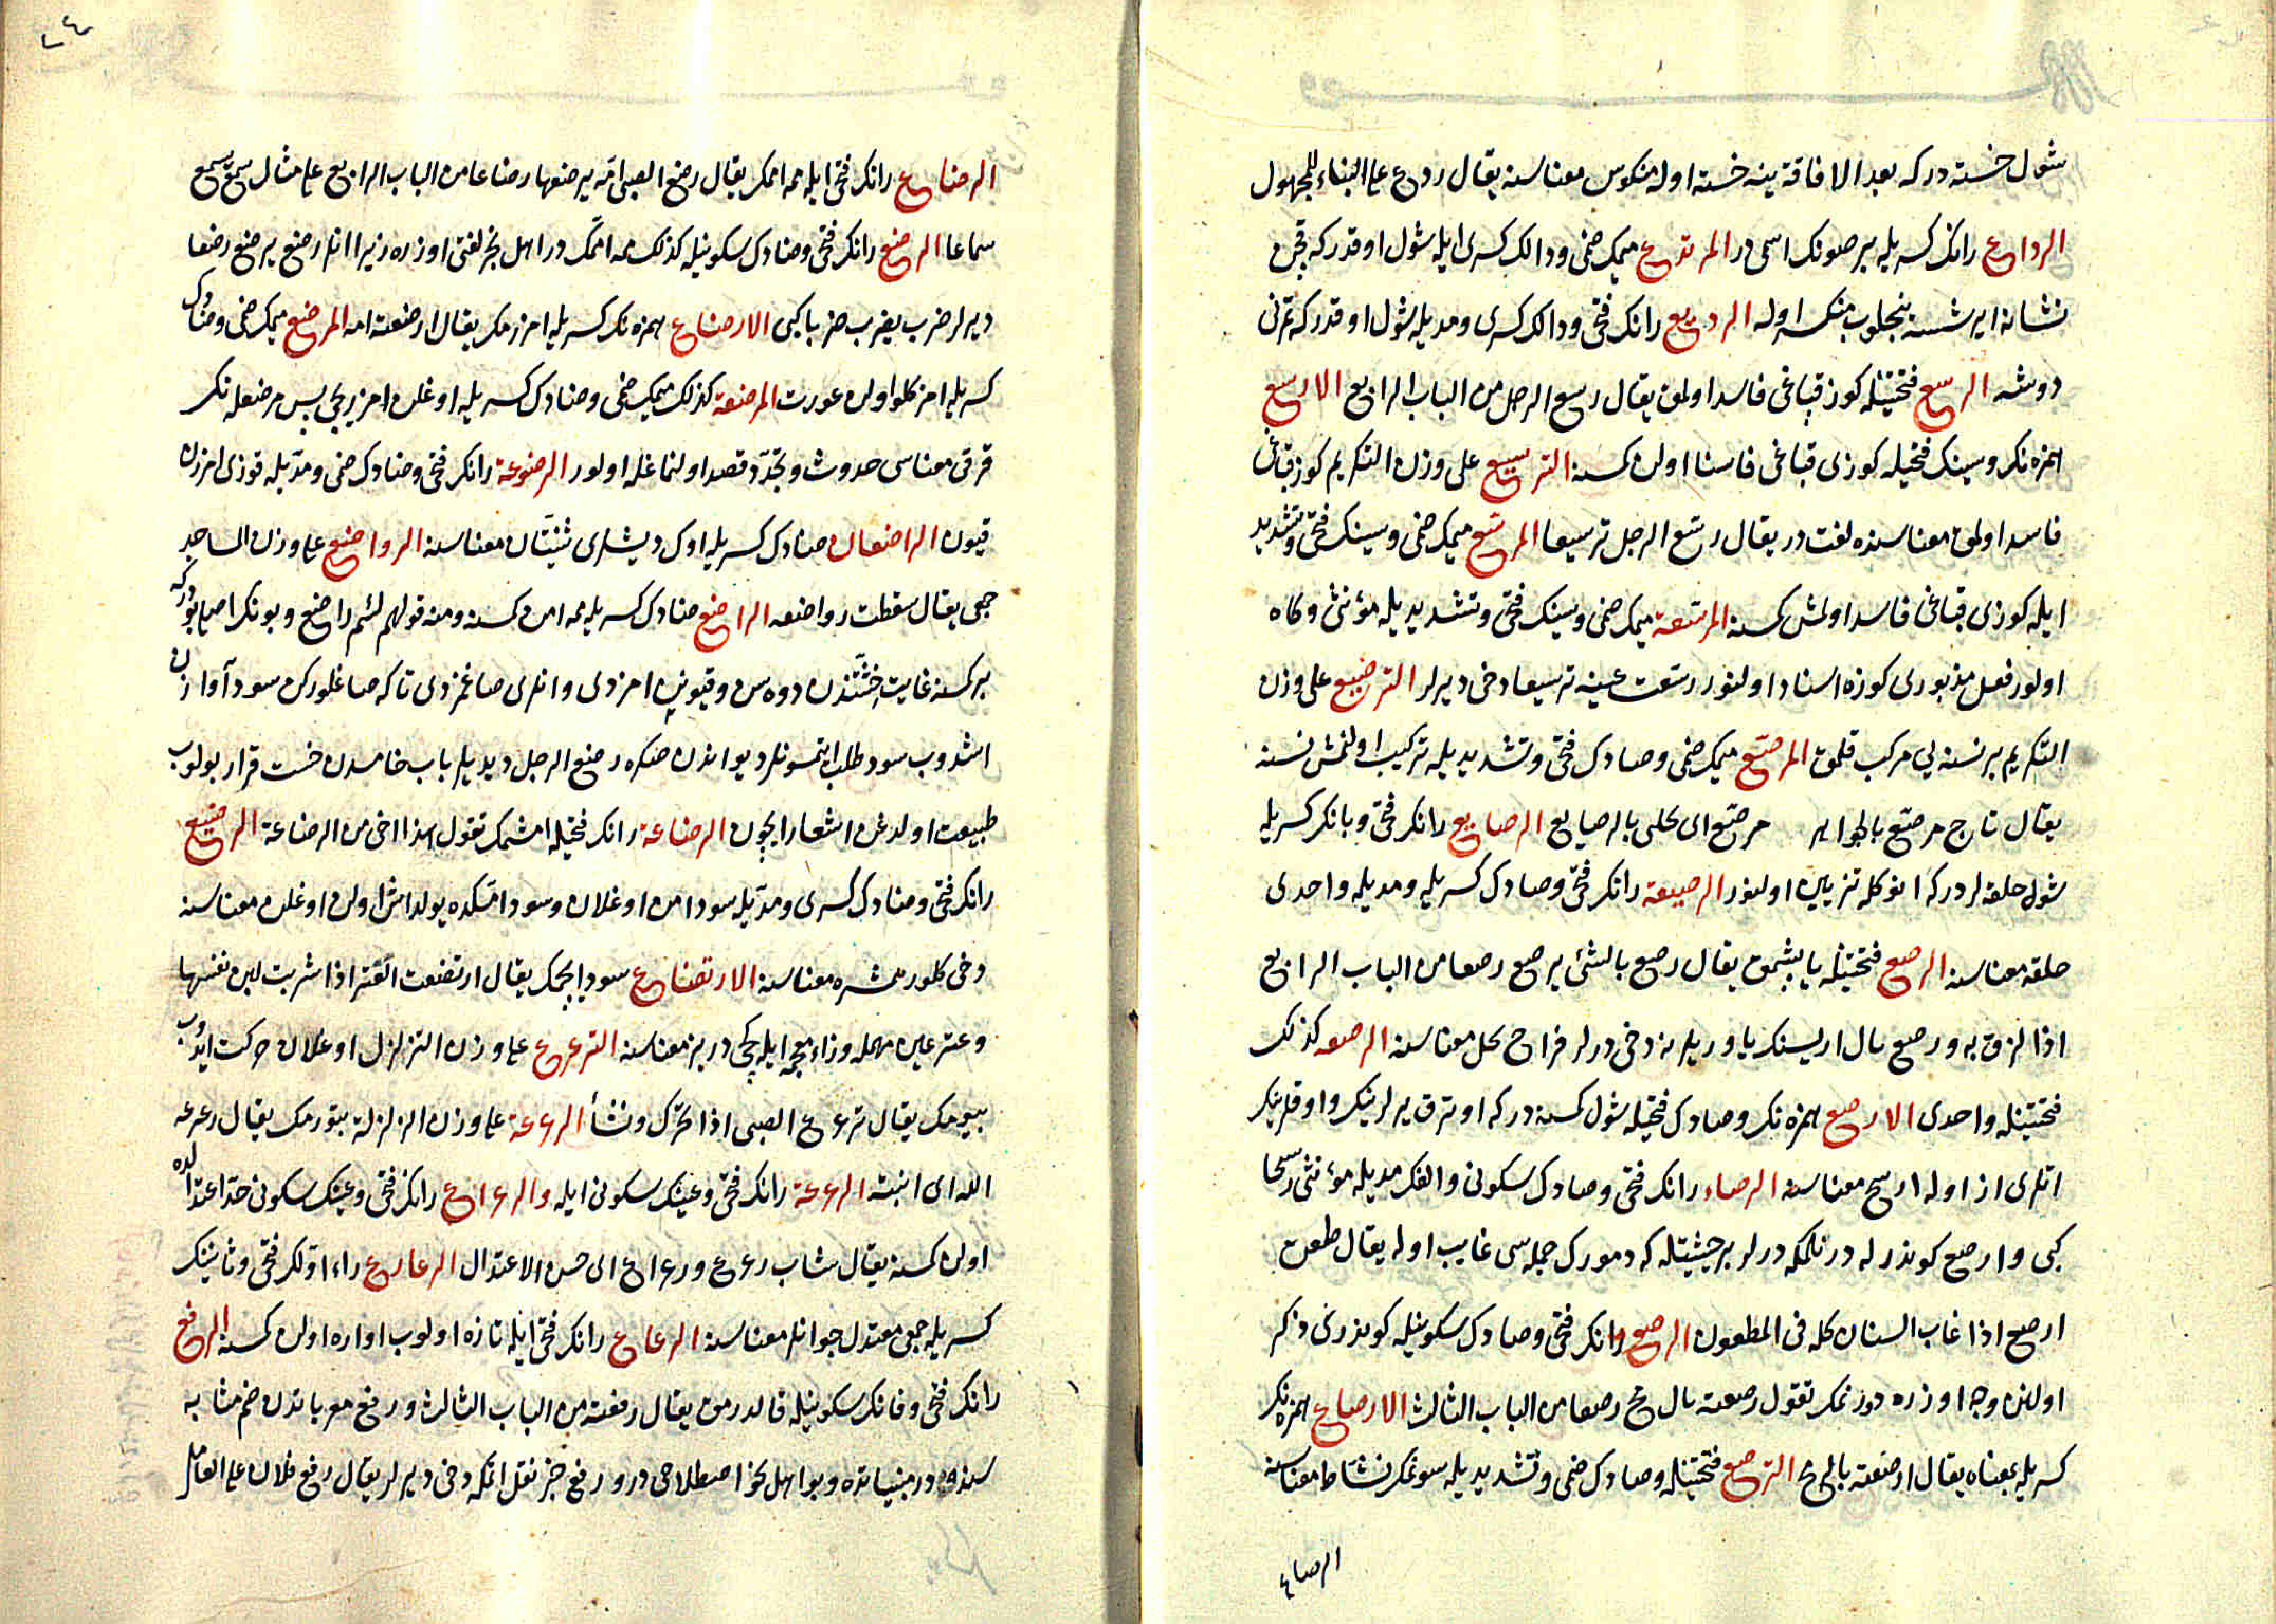 شول خسته در كه بعد الافاقة ينه خسته اوله منكوس معناسنه يقال ردع على البناء للمجهول
الرداع رانك كسريله بر صونك اسمى در المرتدع ميمك ضمى ودالك كسرى ايله شول اوقدر كه قچن
نشانه ايرشسه منكسر اوله الرديع رانك فتحى ودالك كسرى ومديله شول اوقدر كه
دوشه الرسع فتحتينله كوز قپاغى فاسد اولمق يقال رسع الرجل من الباب الرابع الارسع
همزه نك وسينك فتحيله كوزى قپاغى اولن كسنه الترسيع على وزن التكريم كوز قپاغى
فاسد اولمق معناسنده لغت در يقال رسّع الرجل ترسيعا المرسّع ميمك ضمى وسينك فتحى وتشديد
ايله كوزى قپاغى فاسد اولمش كسنه المرسّعة ميمك ضمى وسينك فتحى وتشديديله مؤنثى وكاه
اولور فعل مذبورى كوزه اسناد اولنور رسّعت عينه ترسيعا دخى ديرلر الترصيع على وزن
التكريم بر نسنه يى مركب قلمق المرصّع ميمك ضمى وصادك فتحى وتشديديله تركيب اولنمش نسنه
يقال تاج مرصّع بالجواهر مرصّع اى محلى بالرصايع الرصايع رانك فتحى وبانك كسريله
شول حلقه لردر كه انوكله تزيين اولنور الرصيعة رانك فتحى وصادك كسريله ومديله واحدى
حلقه معناسنه الرصع فتحتينله ياپشمق يقال رصع بالشئ يرصع رصعا من الباب الرابع
اذا لزق به ورصع بال اريسنك ياوريلرنه دخى ديرلر فراخ نحل معناسنه الرصعه كذلك
فتحتينله واحدى الارصع همزه نك وصادك فتحيله شول كسنه در كه اوترق يرلرينك واوقلرينك
اتلرى از اوله ارسح معناسنه الرصعاء رانك فتحى وصادك سكونى والفك مديله مؤنثى رسحا
كبى وارصع كوندرله درتلمكه ديرلر بر حيثيتله كه دمورك جمله سى غايب اوله يقال طعن
ارصع اذا غاب السنان كله فى المطعون الرصع رانك فتحى وصادك سكونيله كوندرى ذكر
اولنن وجه اوزره دورتمك تقول رصعته بالرمح رصعا من الباب الثالث الارصاع همزه نك
كسريله بمعناه يقال ارصعته بالرمح الترصع فتحتينله وصادك ضمى وتشديديله سونمك نشاط معناسنه
الرضاع
الرضاع رانك فتحى ايله ممه اممك يقال رضع الصبى امّه يرضعها رضاعا من الباب الرابع على مثال سمع يسمع
سماعا الرضع رانك فتحى وضادك سكونيله كذلك ممه اممك در اهل نجد لغتى اوزره زيرا انلر رضع يرضع رضعا
ديرلر ضرب يضرب ضربا كبى الارضاع همزه نك كسريله امزرمك يقال ارضعته امه المرضع ميمك ضمى وضادك
كسريله امزكلو اولن عورت المرضعة كذلك ميمك ضمى وضادك كسريله اوغلن امزريجى پس مرضعه نك
فرقى معناسى حدوث وتجدّد قصد اولنماغله اولور الرضوعة رانك فتحى وضادك ضمى ومدّيله قوزى امزرن
قيون الراضعان ضادك كسريله اوك ديشلرى ثنيّتان معناسنه الرواضع على وزن المساجد
جمعى يقال سقطت رواضعه الراضع ضادك كسريله ممه امن كسنه ومنه قولهم لئيم راضع وبونك اصلى بودر كه
بر كسنه غايت خسّتندن دوه سن وقيونن امزدى وانلرى صاغمزدى تا كه صاغلوركن سود آوازن
اشدوب سود طلب ايتمسونلر ديو اندن صكره رضع الرجل ديديلر باب خامسدن خست قرار بولوب
طبيعت اولدغن اشعار ايچون الرضاعة رانك فتحيله امشمك تقول هذا اخى من الرضاعة الرضيع
رانك فتحى وضادك كسرى ومدّيله سود امن اوغلان وسود امّكده يولداش اولن اوغلن معناسنه
دخى كلور همشيره معناسنه الارتضاع سود ايچمك يقال ارتضعت العنز اذا شربت لبن نفسها
وعنز عين مهمله وزاء معجمه ايله كچى در بز معناسنه الترعرع على وزن التزلزل اوغلان حركت ايدوب
بيومك يقال ترعرع الصبى اذا تحرّك ونشأ الرعرعة على وزن الزلزلة بتورمك يقال رعرعه
الله اى انبته الرعرعة رانك فتحى وعينك سكونى ايله والرعراع رانك فتحى وعينك سكونى حدّ اعتدالده
اولن كسنه يقال شاب رعرع ورعراع اى حسن الاعتدال الرعارع راء اولك فتحى وثانينك
كسريله جمعى معتدل جوانلر معناسنه الرعاع رانك فتحى ايله تازه اولوب اواره اولن كسنه الرفع
رانك فتحى وفانك سكونيله قالدرمق يقال رفعته من الباب الثالث ورفع معرباتدن ضم مثابه
سنده در مبنياتده وبو اهل نحو اصطلاحى در ورفع خبر نقل اتمكه دخى ديرلر يقال رفع فلان على العامل